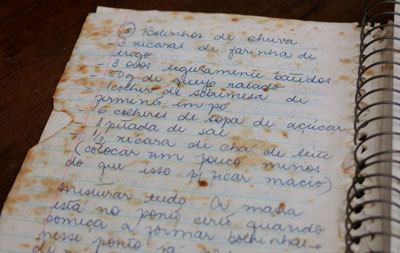 5 Bolinhos de chuva
3 xícaras de farinha de
trigo
3 ovos ligeiramente batidos
50g de queijo ralado
1 colher de sobremesa de
fermento em pó
6 colheres de sopa de açúcar
1 pitada de sal
1/2 xícara de chá de leite
(colocar um pouco menos
do que isso p/ ficar macio)
Misturar tudo. A massa
está no ponto certo quando
começa a formar bolhinhas
nesse ponto